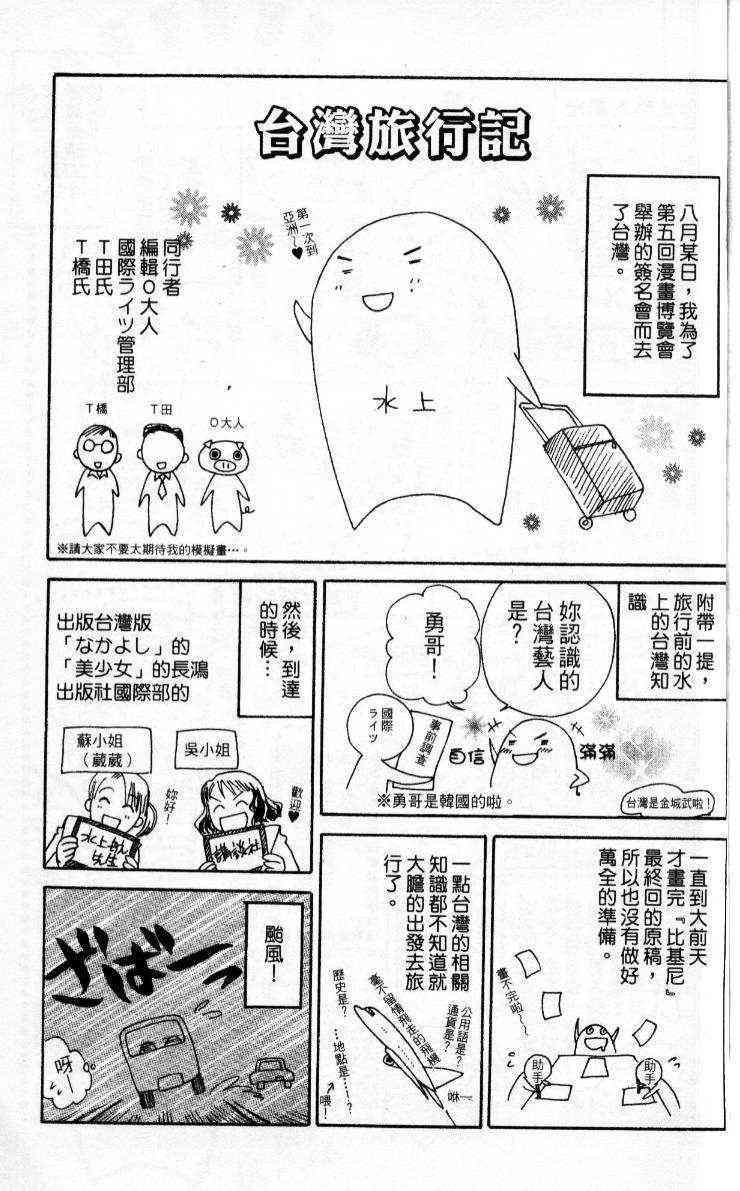 台灣旅行記
八月某日，我為了
第五回漫畫博覽會
舉辦的簽名會而去
了台灣。
第一次到
亞洲～♥
水上
同行者
編輯O大人
國際ライツ管理部
T田氏
T橋氏
T橋
T田
O大人
※請大家不要太期待我的模擬畫…。
附帶一提，
旅行前的水
上的台灣知
識
妳認識的
台灣藝人
是？
勇哥！
國際
ライツ
事前調查
自信
滿滿
※勇哥是韓國的啦。
台灣是金城武啦！
然後，到達
的時候…
出版台灣版
「なかよし」的
「美少女」的長鴻
出版社國際部的
蘇小姐
（葳葳）
吳小姐
妳好！
歡迎♥
水上航
先生
一直到大前天
才畫完『比基尼』
最終回的原稿，
所以也沒有做好
萬全的準備。
畫不完啦～～
助手
助手
一點台灣的相關
知識都不知道就
大膽的出發去旅
行了。
公用語是？
通貨是？
毫不留情飛走的飛機
歷史是？
…地點是…！？
喂！
咻—
颱風！
ざばーっ
呀—